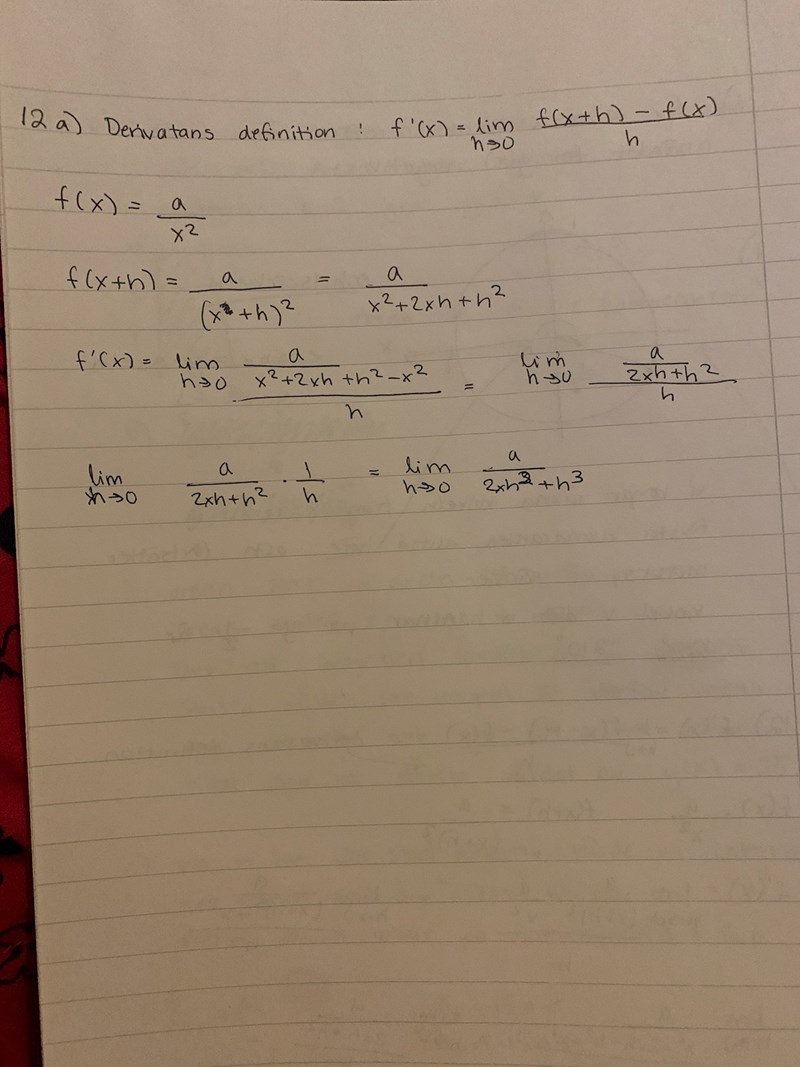 12 a) Derivatans definition : f'(x) = lim h→0 (f(x+h) - f(x))/h
f(x) = a/x²
f(x+h) = a/(x+h)² = a/(x²+2xh+h²)
f'(x) = lim h→0 (a/(x²+2xh+h²-x²))/h = lim h→0 (a/(2xh+h²))/h
lim h→0 a/(2xh+h²) · 1/h = lim h→0 a/(2xh²+h³)